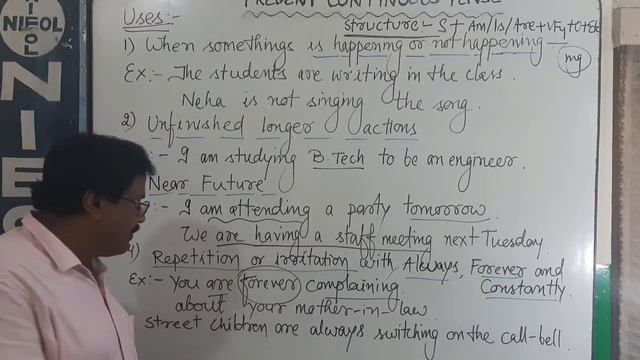 NIEOL
PRESENT CONTINUOUS TENSE
Uses:-
Structure:- S + Am/Is/Are + VF4 + O + Etc
1) When somethings is happening or not happening
ing
Ex:- The students are writing in the class.
Neha is not singing the song.
2) Unfinished longer actions
:- I am studying B.Tech to be an engineer.
Near Future
:- I am attending a party tomorrow.
We are having a staff meeting next Tuesday.
4) Repetition or irritation with Always, Forever and Constantly.
Ex:- You are forever complaining
about your mother-in-law
Street children are always switching on the call-bell.